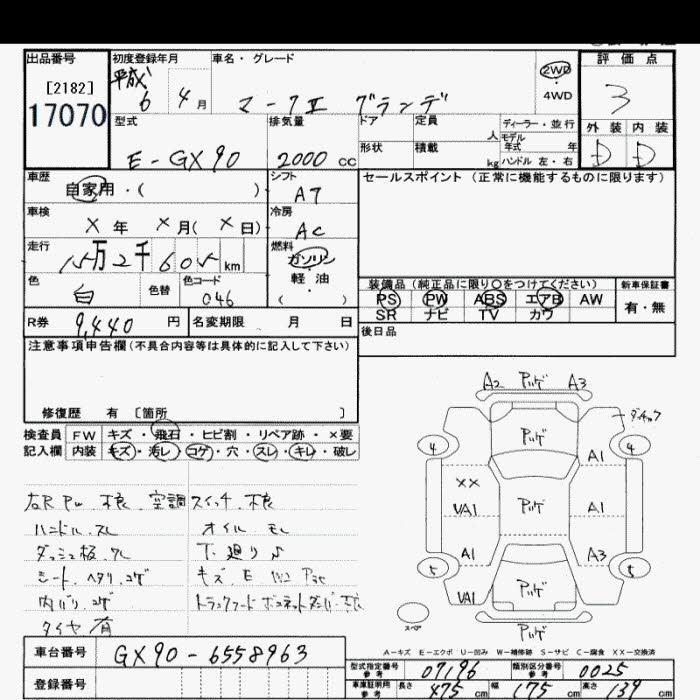 出品番号 初度登録年月 車名・グレード 2WD 評価点
[2182] 平成 ・
17070 6 4月 マークⅡ グランデ 4WD 3
型式 排気量 ドア 定員 ディーラー・並行 外装 内装
人 モデル年式 年
E-GX90 2000cc 形状 積載 kg ハンドル 左・右 D D
車歴 シフト セールスポイント (正常に機能するものに限ります)
自家用・( ) AT
車検 冷房
×年 ×月( ×日) AC
走行 燃料
15万2千605km ガソリン
色 色替 色コード 軽・油 装備品 (純正品に限り〇をつけてください) 新車保証書
白 046 ( ) PS PW ABS エアB AW 有・無
R券 9,440円 名変期限 月 日 SR ナビ TV カワ
注意事項申告欄(不具合内容等は具体的に記入して下さい) 後日品
修復歴 有 [箇所 ]
検査員 FW キズ・飛石・ヒビ割・リペア跡・×要
記入欄 内装 キズ・汚レ・コゲ・穴・スレ・キレ・破レ
右R PW 不良 空調スイッチ 不良
ハンドル スレ オイル モレ
ダッシュ板 ワレ 下廻り
シート ヘタリ コゲ キズ E
内バリ コゲ
タイヤ 有
A2 アリゲ A3
4 アリゲ 4
A1
××
VA1 アリゲ A1
A1 A3
5 アリゲ 5
VA1
スペア アリゲ
A-キズ E-エクボ U-凹み W-補修跡 S-サビ C-腐食 XX-交換済
車台番号 GX90-6558963
型式指定番号 参考 07196 類別区分番号 参考 0025
登録番号 車庫証明用 参考 長さ 475cm 幅 175cm 高さ 139cm